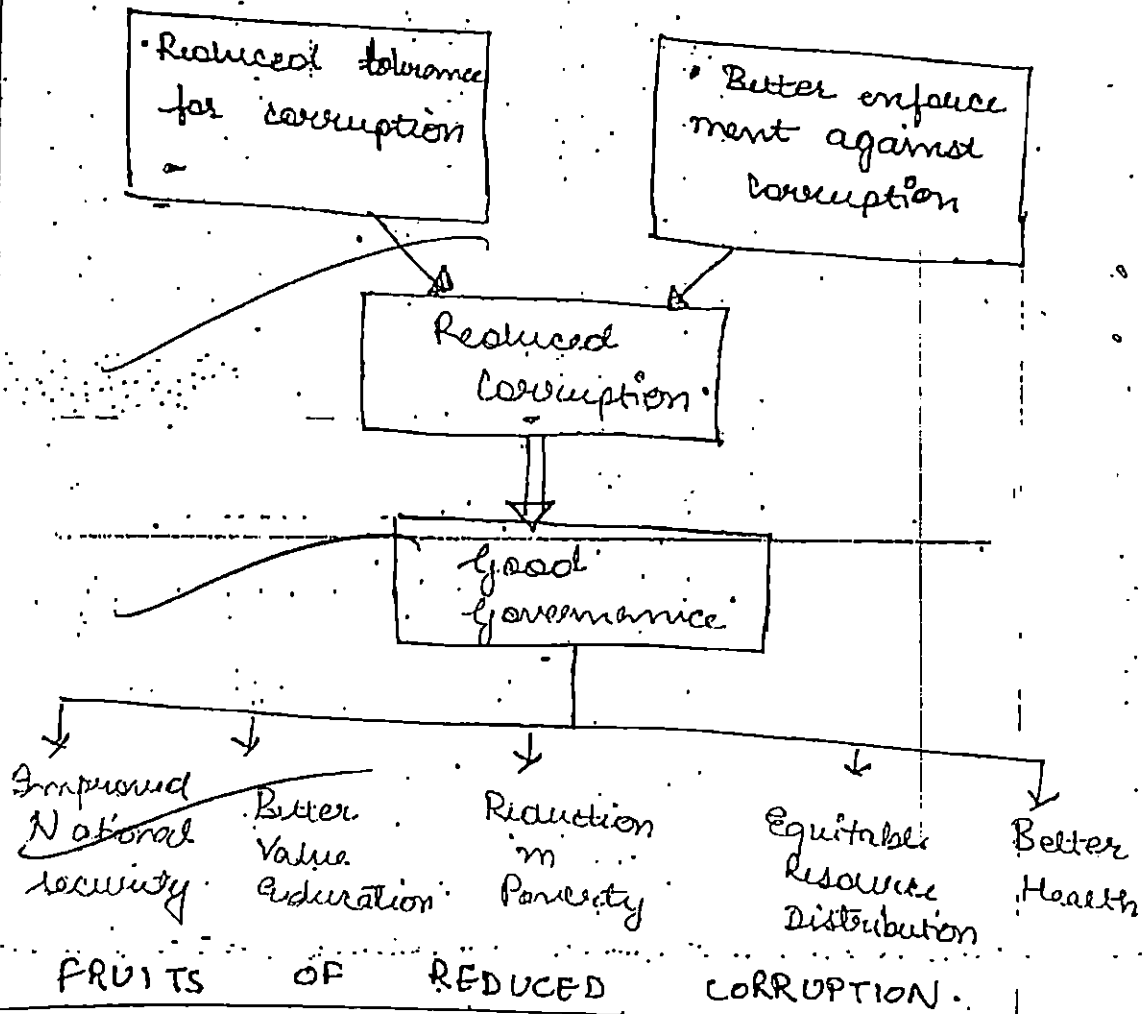 · Reduced tolerance
for corruption
· Better enforce
ment against
corruption
Reduced
corruption
Good
Governance
Improved
National
security
Better
Value
Education
Reduction
in
Poverty
Equitable
Resource
Distribution
Better
Health
FRUITS OF REDUCED CORRUPTION.